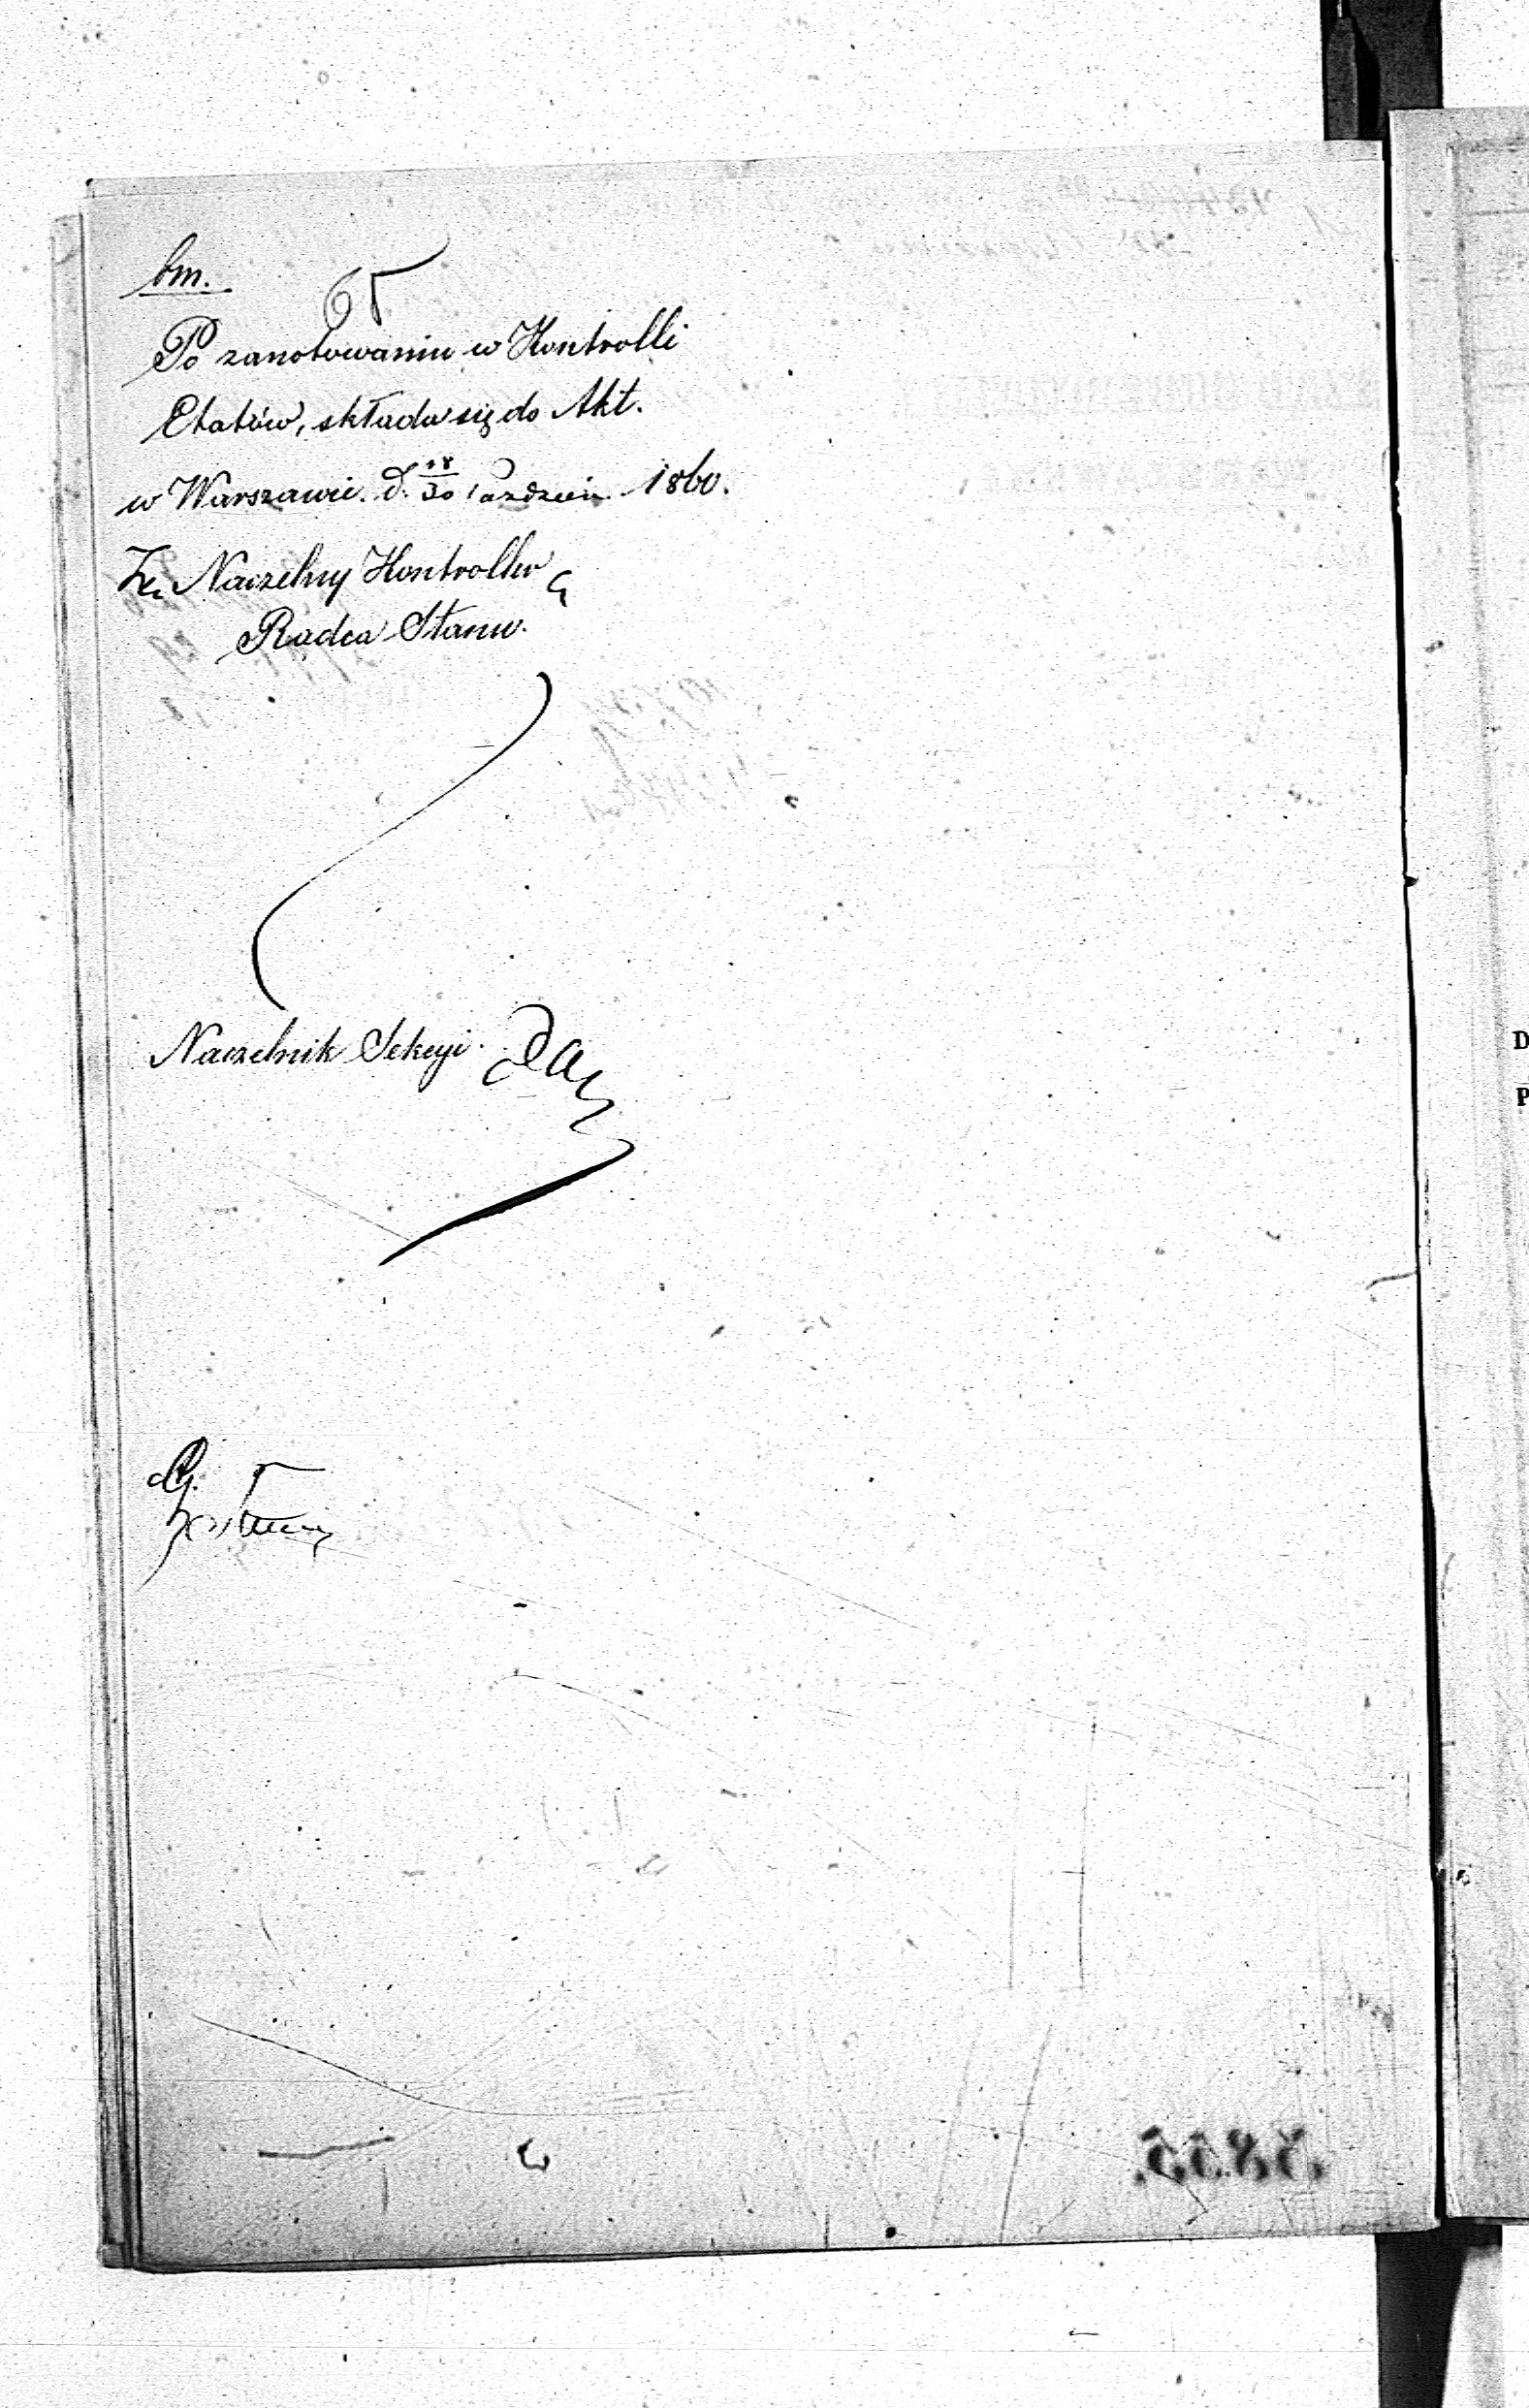 bm.
65
Po zanotowaniu w Kontrolli
Etatów, składa się do Akt.
w Warszawie. d. 18/30 Paździer. 1860.
Za Naczelny Kontroller
Radca Stanu.
Naczelnik Sekcyi.